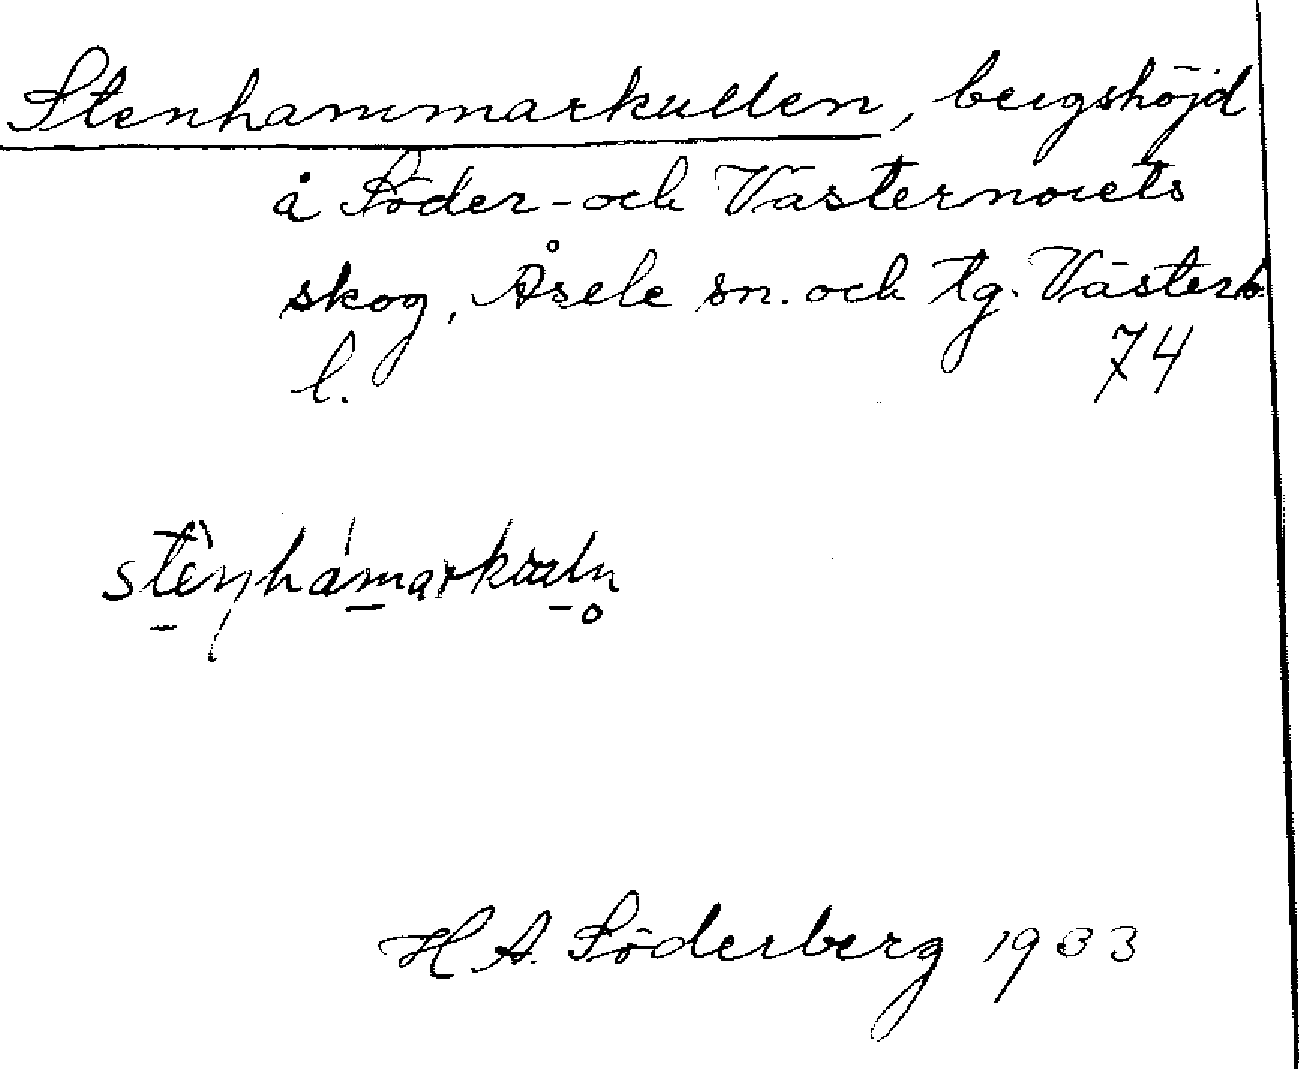 Stenhammarkullen, bergshöjd
å Söder- och Västernorets
skog, Åsele sn. och tg. Västerb.
l. 74
H. A. Söderberg 1933